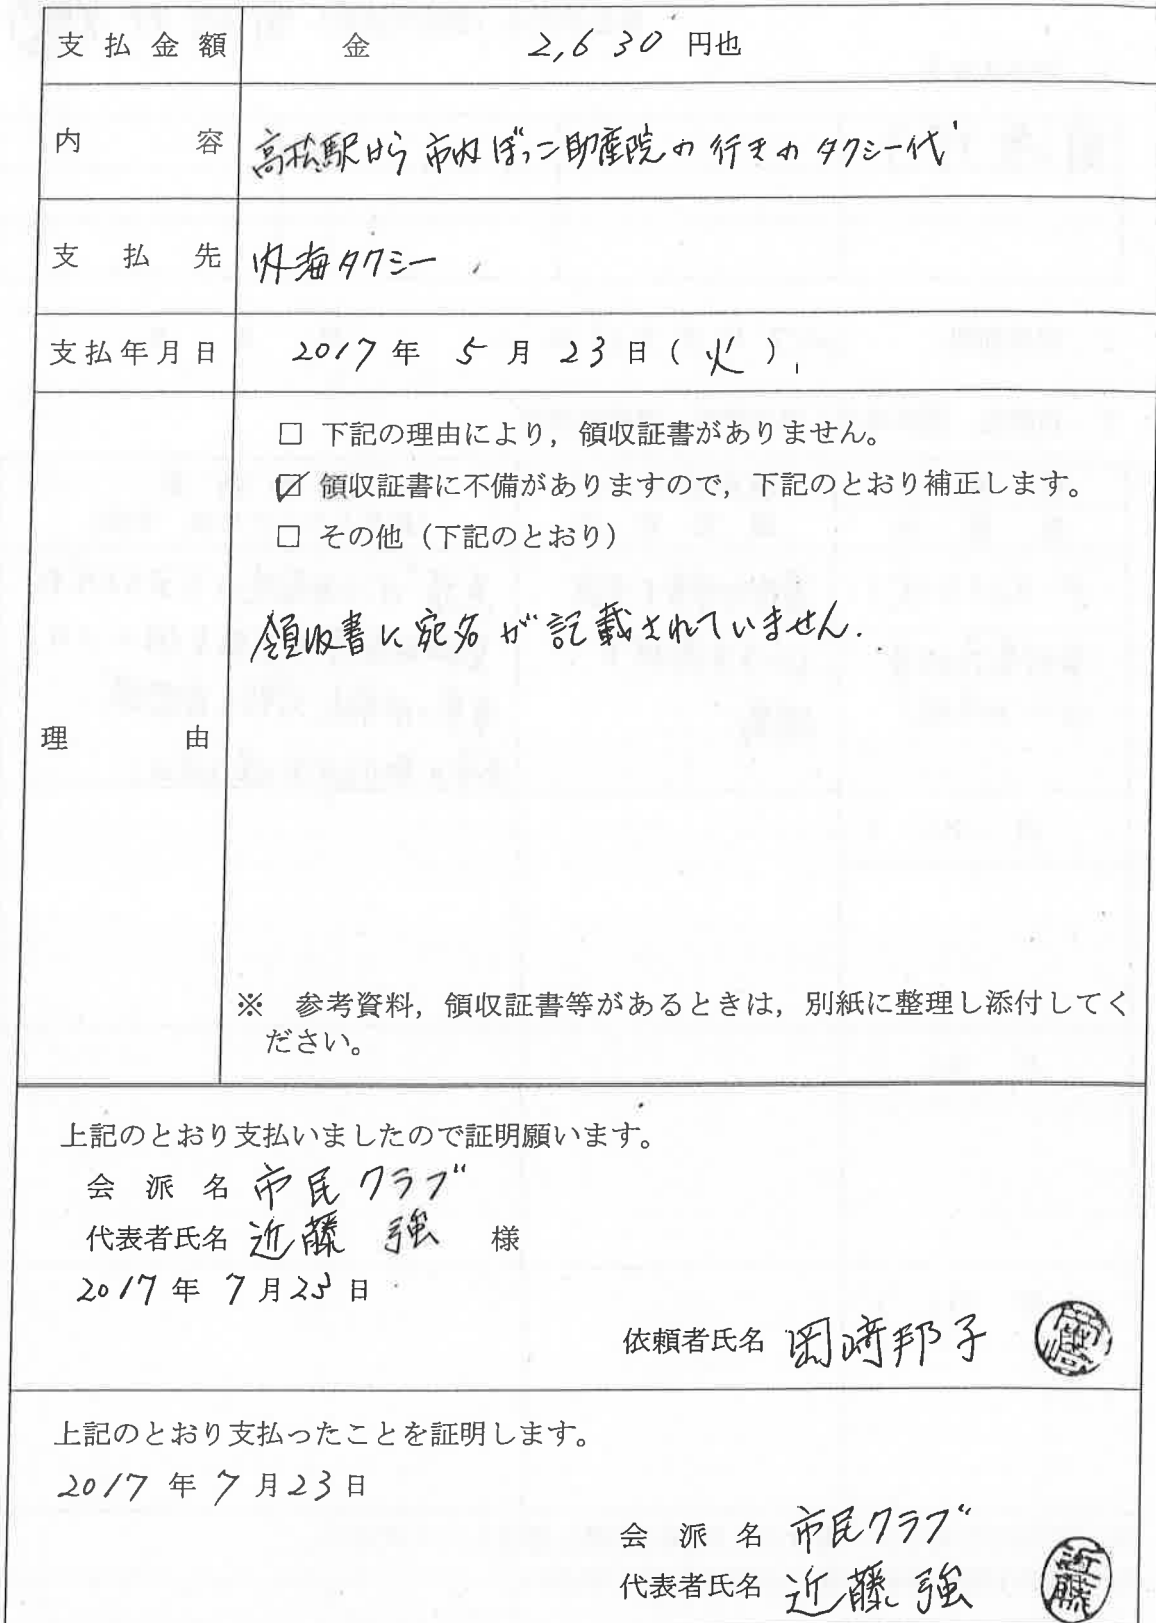 支払金額 金 2,630 円也
内容 高松駅から市内ぼっこ助産院の行きのタクシー代
支払先 内海タクシー
支払年月日 2017年 5月 23日(火)
□ 下記の理由により,領収証書がありません。
☑ 領収証書に不備がありますので,下記のとおり補正します。
□ その他(下記のとおり)
領収書に宛名が記載されていません.
理由
※ 参考資料,領収証書等があるときは,別紙に整理し添付してく
ださい。
上記のとおり支払いましたので証明願います。
会派名 市民クラブ
代表者氏名 近藤 強 様
2017年 7月23日
依頼者氏名 岡崎邦子
上記のとおり支払ったことを証明します。
2017年 7月23日
会派名 市民クラブ
代表者氏名 近藤 強 近藤